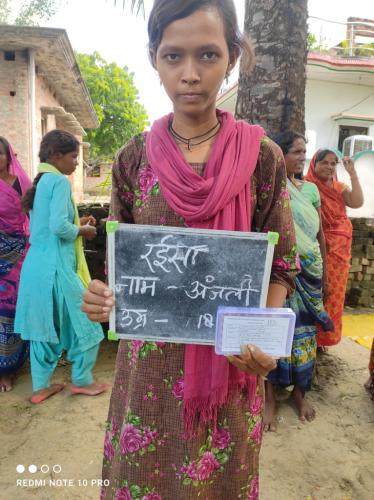 रईसा
नाम - अंजली
उम्र - 18
REDMI NOTE 10 PRO